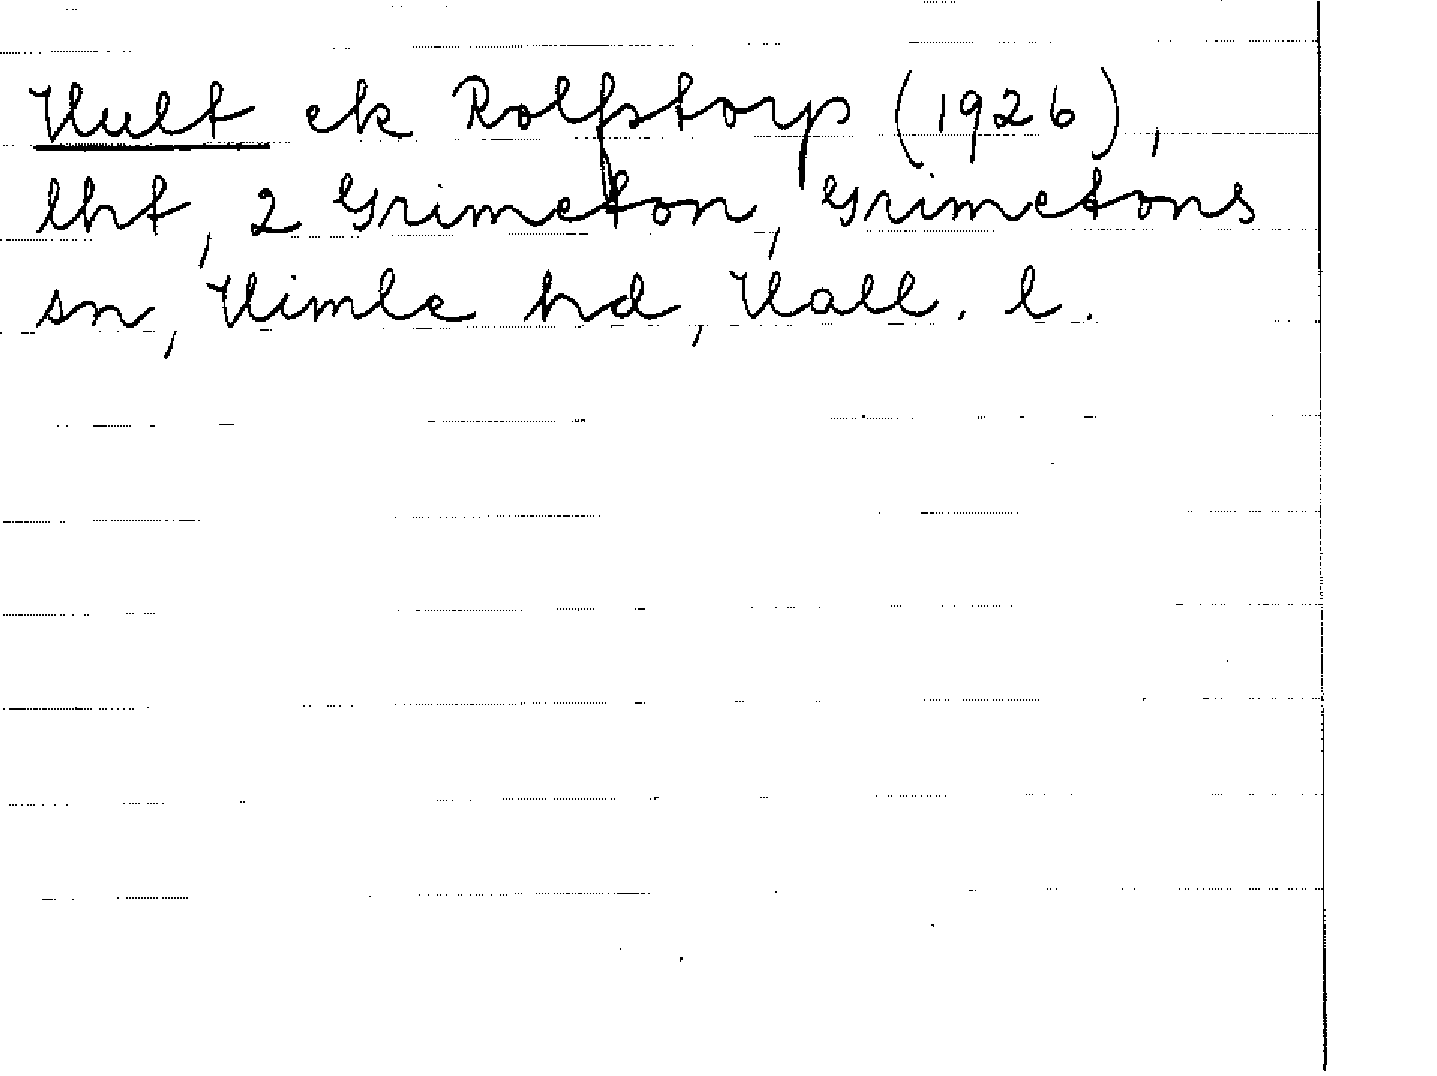 Hult ek Rolfstorp (1926),
lht, 2 Grimeton, Grimetons
sn, Himle hd, Hall. l.